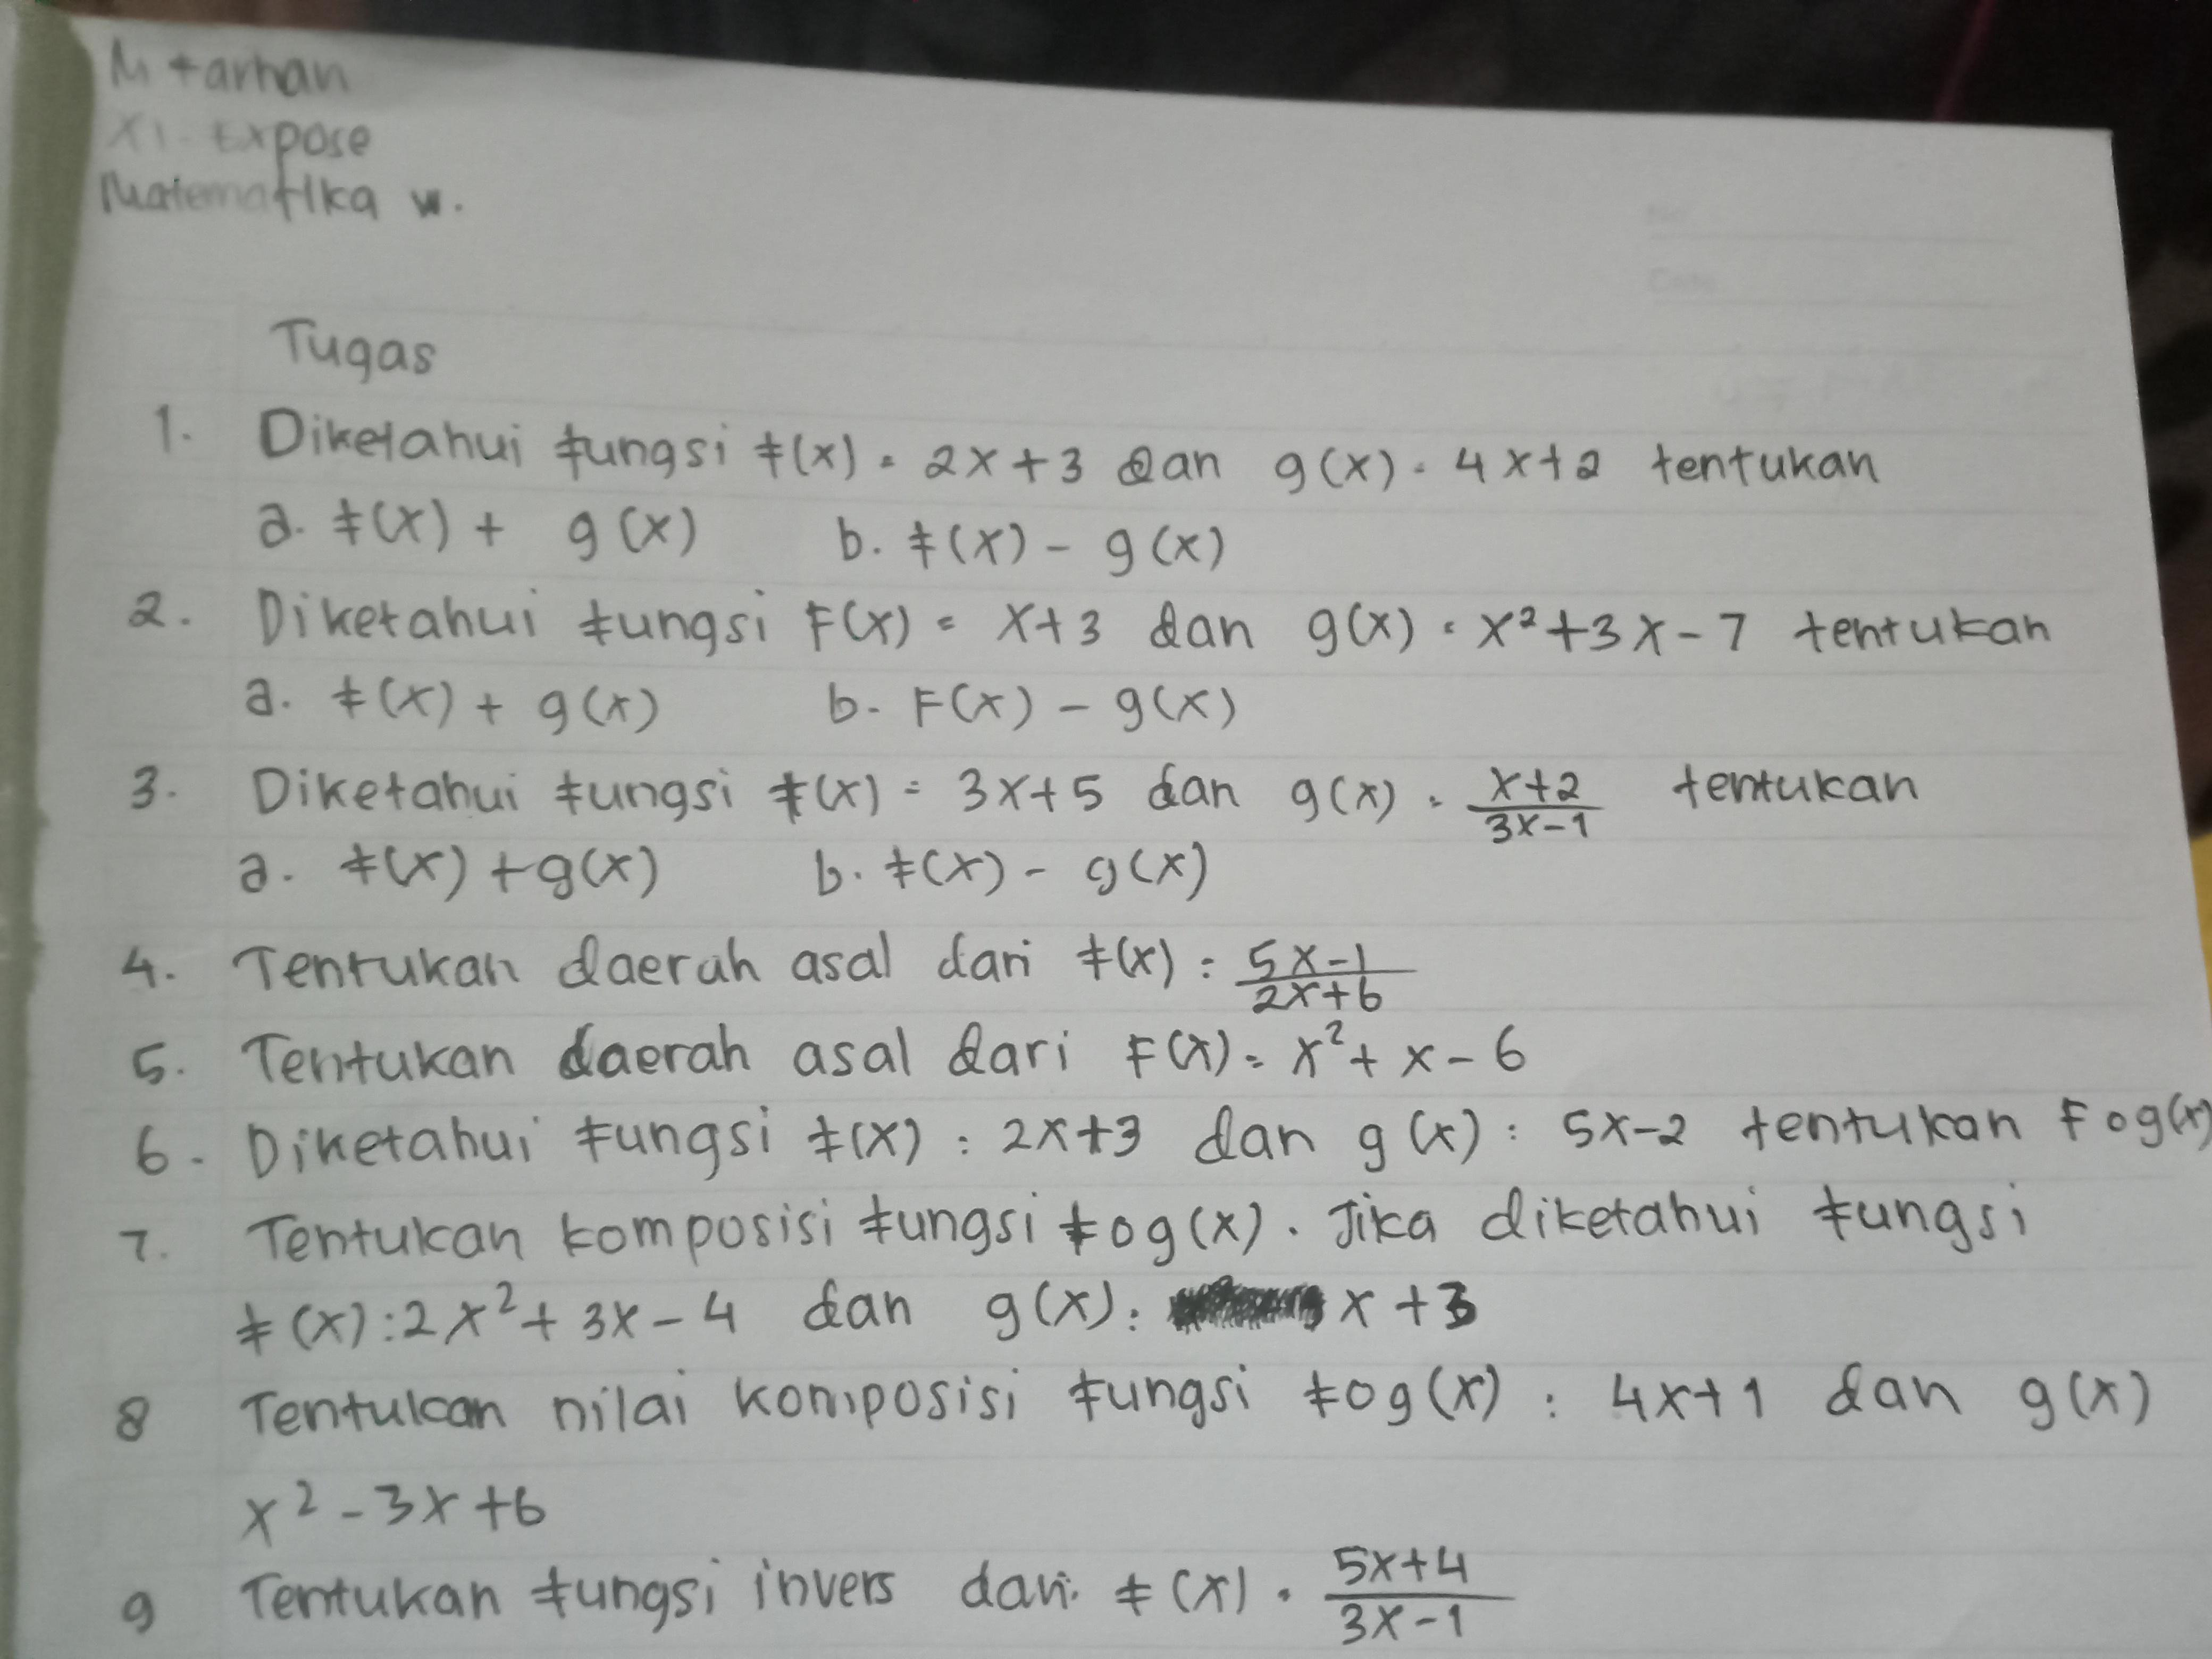 M farhan
XI. Expose
Matematika w.
Tugas
1. Diketahui fungsi f(x) = 2x+3 dan g(x) = 4x+2 tentukan
a. f(x) + g(x) b. f(x) - g(x)
2. Diketahui fungsi F(x) = x+3 dan g(x) = x²+3x-7 tentukan
a. f(x) + g(x) b. F(x) - g(x)
3. Diketahui fungsi f(x) = 3x+5 dan g(x) = (x+2)/(3x-1) tentukan
a. f(x) + g(x) b. f(x) - g(x)
4. Tentukan daerah asal dari f(x) = (5x-1)/(2x+6)
5. Tentukan daerah asal dari F(x) = x²+x-6
6. Diketahui fungsi f(x) : 2x+3 dan g(x) : 5x-2 tentukan Fog(x)
7. Tentukan komposisi fungsi fog(x). Jika diketahui fungsi
f(x) : 2x²+3x-4 dan g(x) : x+3
8 Tentukan nilai komposisi fungsi fog(x) : 4x+1 dan g(x)
x²-3x+6
9 Tentukan fungsi invers dari f(x) = (5x+4)/(3x-1)